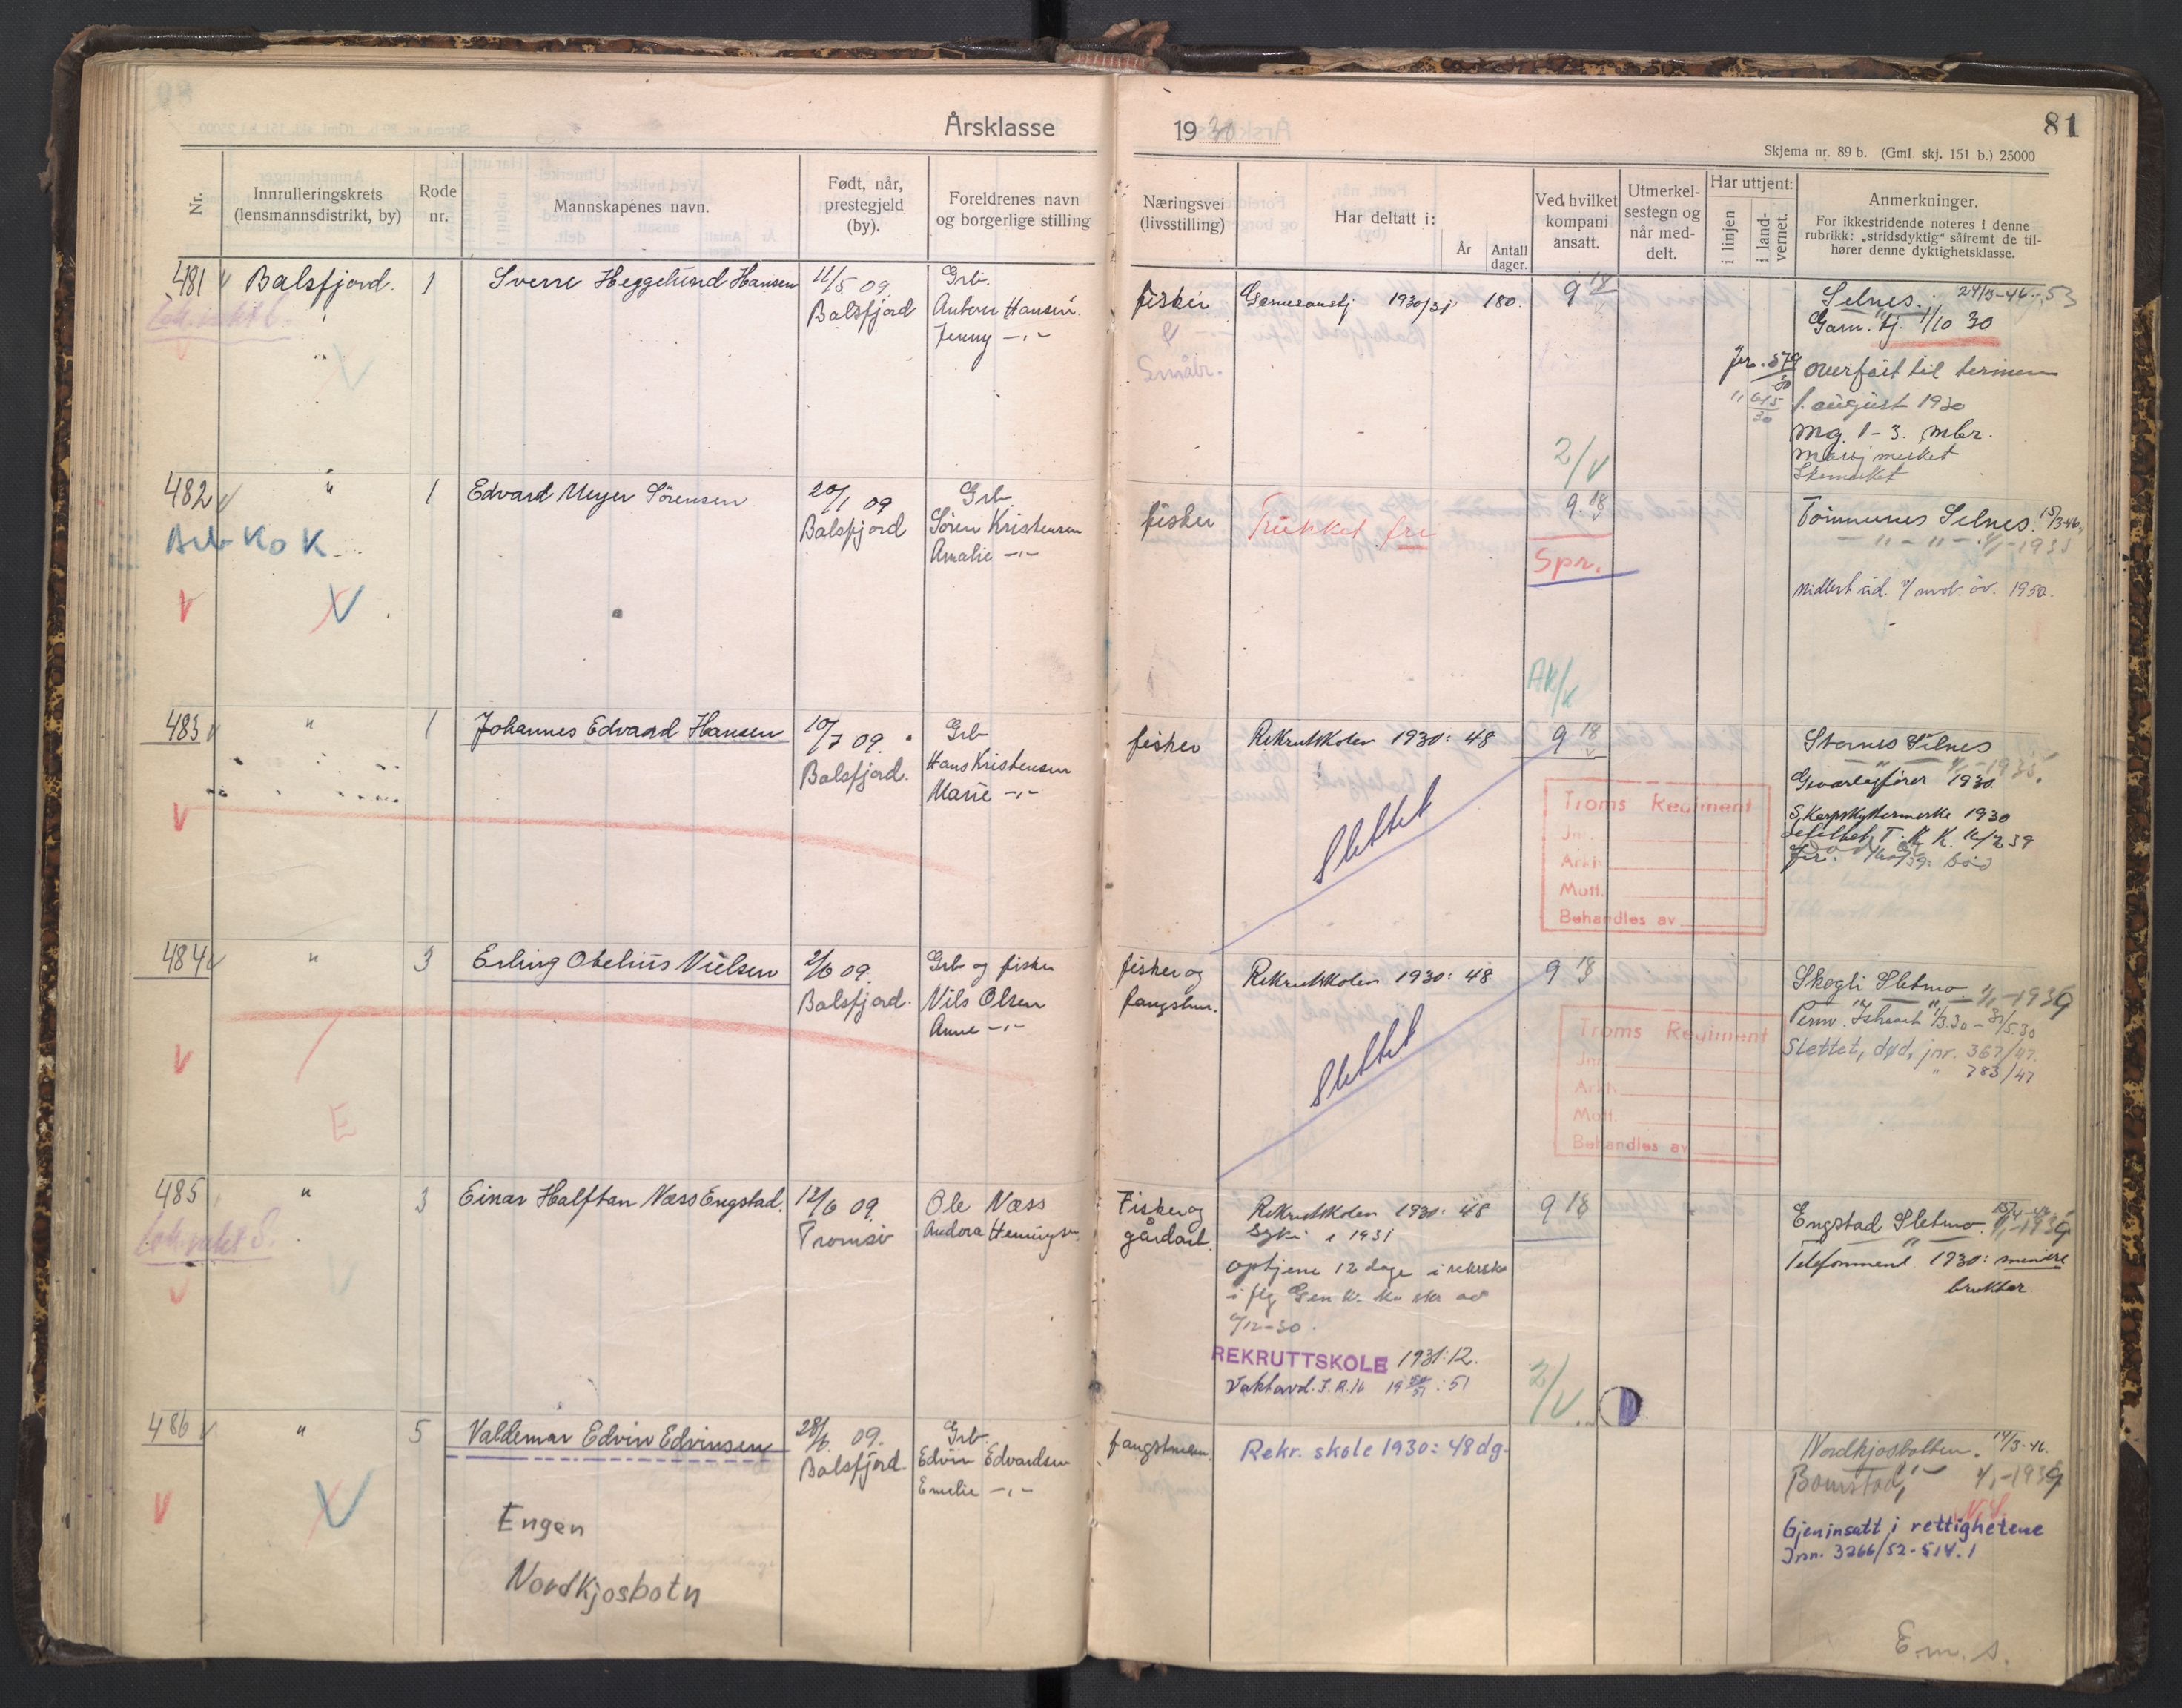 Årsklasse 1930
81
Skjema nr. 89 b. (Gml. skj. 151 b.) 25000
Nr.
Innrulleringskrets (lensmannsdistrikt, by)
Rode nr.
Mannskapenes navn.
Født, når, prestegjeld (by).
Foreldrenes navn og borgerlige stilling
Næringsvei (livsstilling)
Har deltatt i:
År
Antall dager.
Ved hvilket kompani ansatt.
Utmerkelsestegn og når meddelt.
Har uttjent:
i linjen
i landvernet.
Anmerkninger.
For ikkestridende noteres i denne rubrikk: „stridsdyktig“ såfremt de tilhører denne dyktighetsklasse.
481 Balsfjord. 1 Sverre Heggelund Hansen 11/5 09.
Balsfjord
Grb.
Anton Hansen.
Jenny -"-
fisker
&
Småbr.
1930/31 180.
9 18
2/V
Selnes. 24/3-46-53
Garn. tj. 1/10 30
Jnr. 579/30 overført til termin
" 615/30 1. august 1930
Mg. 1-3. mbr.
Skimerket
482 " 1 Edvard Meyer Sörensen 20/1 09
Balsfjord
Grb.
Sören Kristensen
Amalie -"-
fisker
Trukket fri
9. 18
Spr.
AK/V
Tömmernes Selnes. 15/3-46.
Midlert. ud. 1950.
483 " 1 Johannes Edvard Hansen 10/7 09.
Balsfjord.
Grb
Hans Kristensen
Marie -"-
fisker
Rekrutskolen 1930: 48
9 18
Slettet
Troms Regiment
Jnr.
Arkiv
Mott.
Behandles av
Stornes Selnes
Geværlagfører 1930.
Skarpskyttermerke 1930
484 " 3 Erling Obelius Nielsen 2/6 09.
Balsfjord.
Grb og fisker
Nils Olsen
Anne -"-
fisker og
fangstm.
Rekrutskolen 1930: 48
9 18
Slettet
Troms Regiment
Jnr.
Arkiv
Mott.
Behandles av
E
Skogli Sletmo 1/1-1939
Perm. Ishavet 1/3.30 - 31/5.30
Slettet, død, jnr. 367/47.
" 783/47
485 " 3 Einar Halftan Næss Engstad. 12/6 09.
Tromsö
Ole Næss
Andora
Fisker og
gårdarb.
Rekrutskolen 1930: 48
Syk i 1931
optjene 12 dage i rekrsk
i flg Gen
/12-30.
REKRUTTSKOLE 1931: 12.
Vaktavd. I.R.16 : 51
9 18
2/V.
Engstad Sletmo. 1/1-1939
Telefonment 1930: mindre
brukbar.
486 " 5 Valdemar Edvin Edvinsen 28/6. 09.
Balsfjord.
Grb.
Edvin Edvardsen
Emelie -"-
Engen
Nordkjosbotn
fangstmann.
Rekr. skole 1930: 48 dg.
Nordkjosbotten. 14/3-46.
1/1-1939
N.S.
Gjeninsatt i rettighetene
Jnn. 3266/52-514.1
E.m.s.